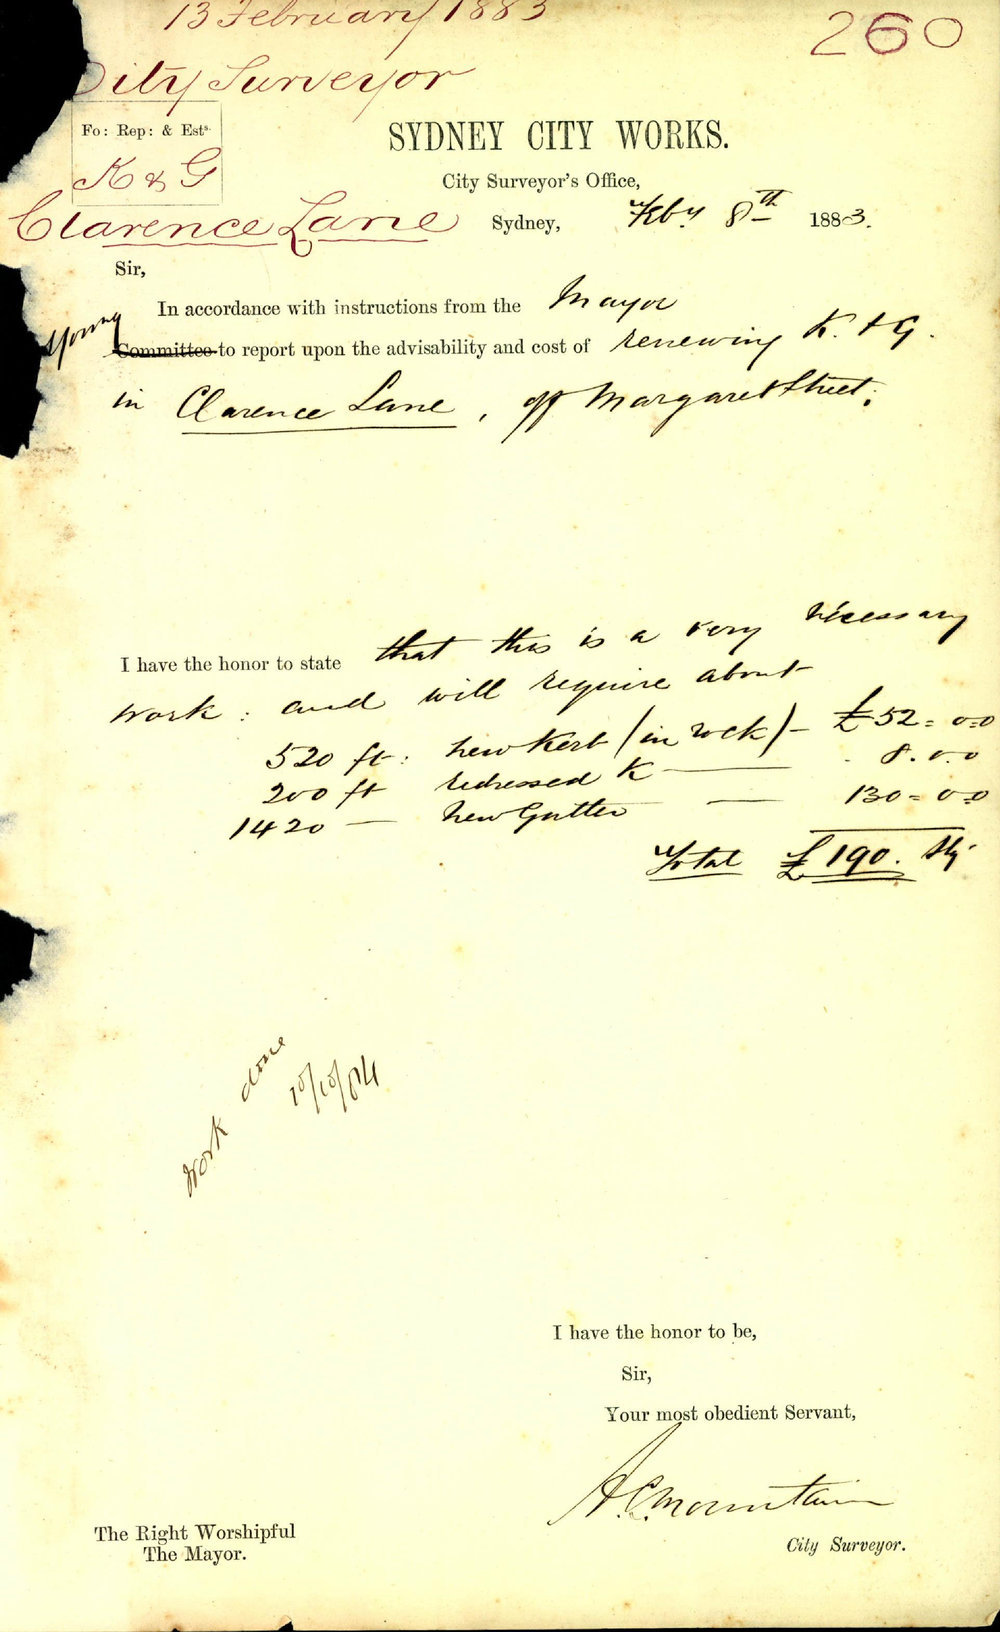 13 February 1883
260
City Surveyor
Fo: Rep: & Ests.
K & G
SYDNEY CITY WORKS.
City Surveyor's Office,
Clarence Lane
Sydney, Feby. 8th 1883.
Sir,
In accordance with instructions from the Mayor
Committee to report upon the advisability and cost of renewing K. & G.
in Clarence Lane, off Margaret Street:
I have the honor to state that this is a very necessary
work: and will require about
520 ft: new Kerb (in rock) — £52=0=0
200 ft redressed K — 8.0.0
1420 — New Gutter — 130=0=0
Total £190. Stg
Work done
10/10/84
I have the honor to be,
Sir,
Your most obedient Servant,
A.C. Mountain
City Surveyor.
The Right Worshipful
The Mayor.